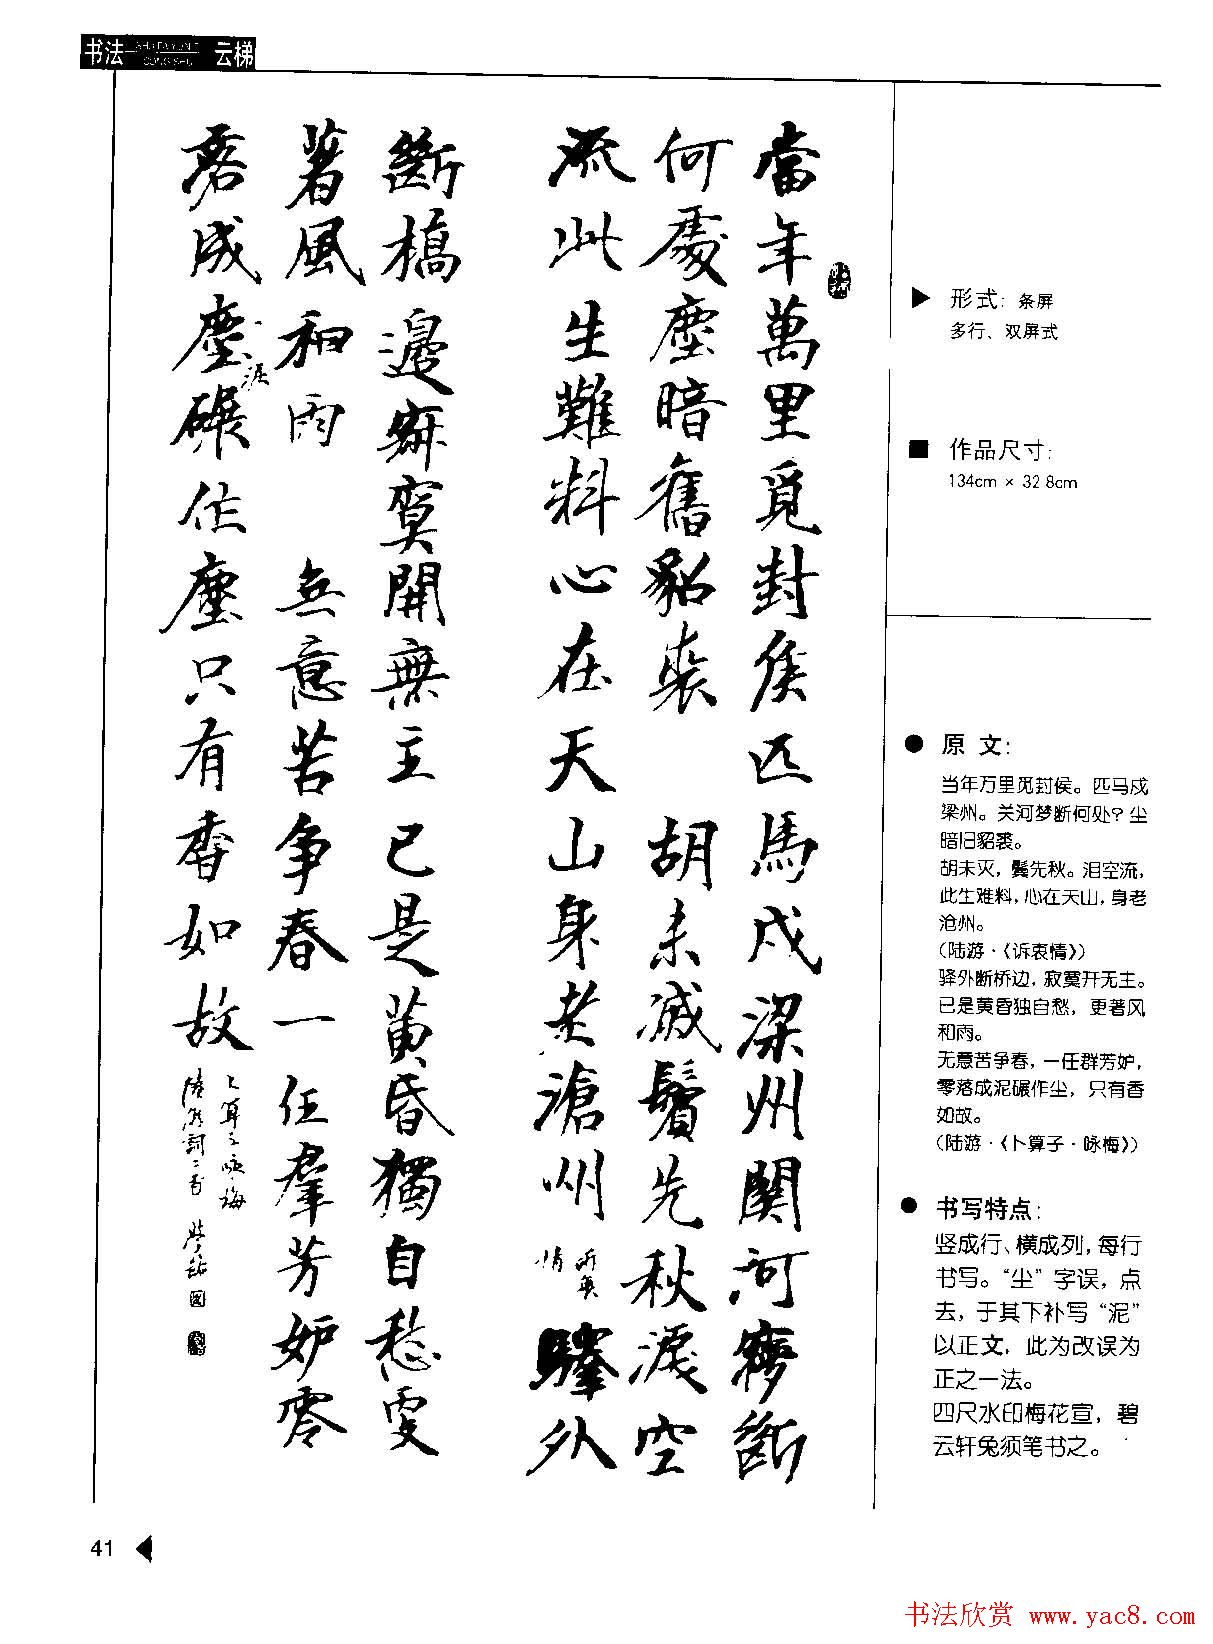 书法 SHUFAYUNTI CONGSHU 云梯
當年萬里覓封侯匹馬戍梁州關河夢斷
何處塵暗舊貂裘 胡未滅鬢先秋淚空
流此生難料心在天山身老滄州 訴衷
情
驛外
斷橋邊寂寞開無主已是黃昏獨自愁更
著風和雨 無意苦爭春一任羣芳妒零
落成塵碾作塵只有香如故
泥
卜算子咏梅
陸游詞二首
▶ 形式: 条屏
多行、双屏式
■ 作品尺寸:
134cm × 32 8cm
● 原 文:
当年万里觅封侯。匹马戍
梁州。关河梦断何处？尘
暗旧貂裘。
胡未灭，鬓先秋。泪空流，
此生难料，心在天山，身老
沧州。
(陆游·《诉衷情》)
驿外断桥边，寂寞开无主。
已是黄昏独自愁，更著风
和雨。
无意苦争春，一任群芳妒，
零落成泥碾作尘，只有香
如故。
(陆游·《卜算子·咏梅》)
● 书写特点:
竖成行、横成列，每行
书写。“尘”字误，点
去，于其下补写“泥”
以正文，此为改误为
正之一法。
四尺水印梅花宣，碧
云轩兔须笔书之。
41
书法欣赏 www.yac8.com